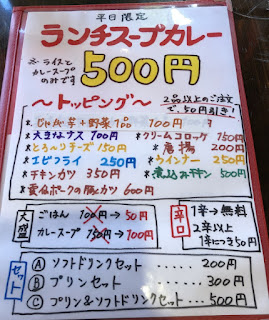 平日限定
ランチスープカレー
※ライスとカレースープのみです
500円
〜トッピング〜
2品以上のご注文で、50円引き!
*じゃが芋+野菜1品 100円
*大きなナス 100円
*クリームコロッケ 150円
*とろ〜りチーズ 150円
*唐揚 200円
*エビフライ 250円
*ウインナー 250円
*チキンカツ 350円
*煮込みチキン 500円
ポークの豚ヒレカツ 600円
大盛
ごはん 100円→50円
カレースープ 150円→100円
辛口
1辛→無料
2辛以上
1辛につき50円
セット
Ⓐ ソフトドリンクセット ..... 200円
Ⓑ プリンセット ..... 300円
Ⓒ プリン&ソフトドリンクセット .... 500円